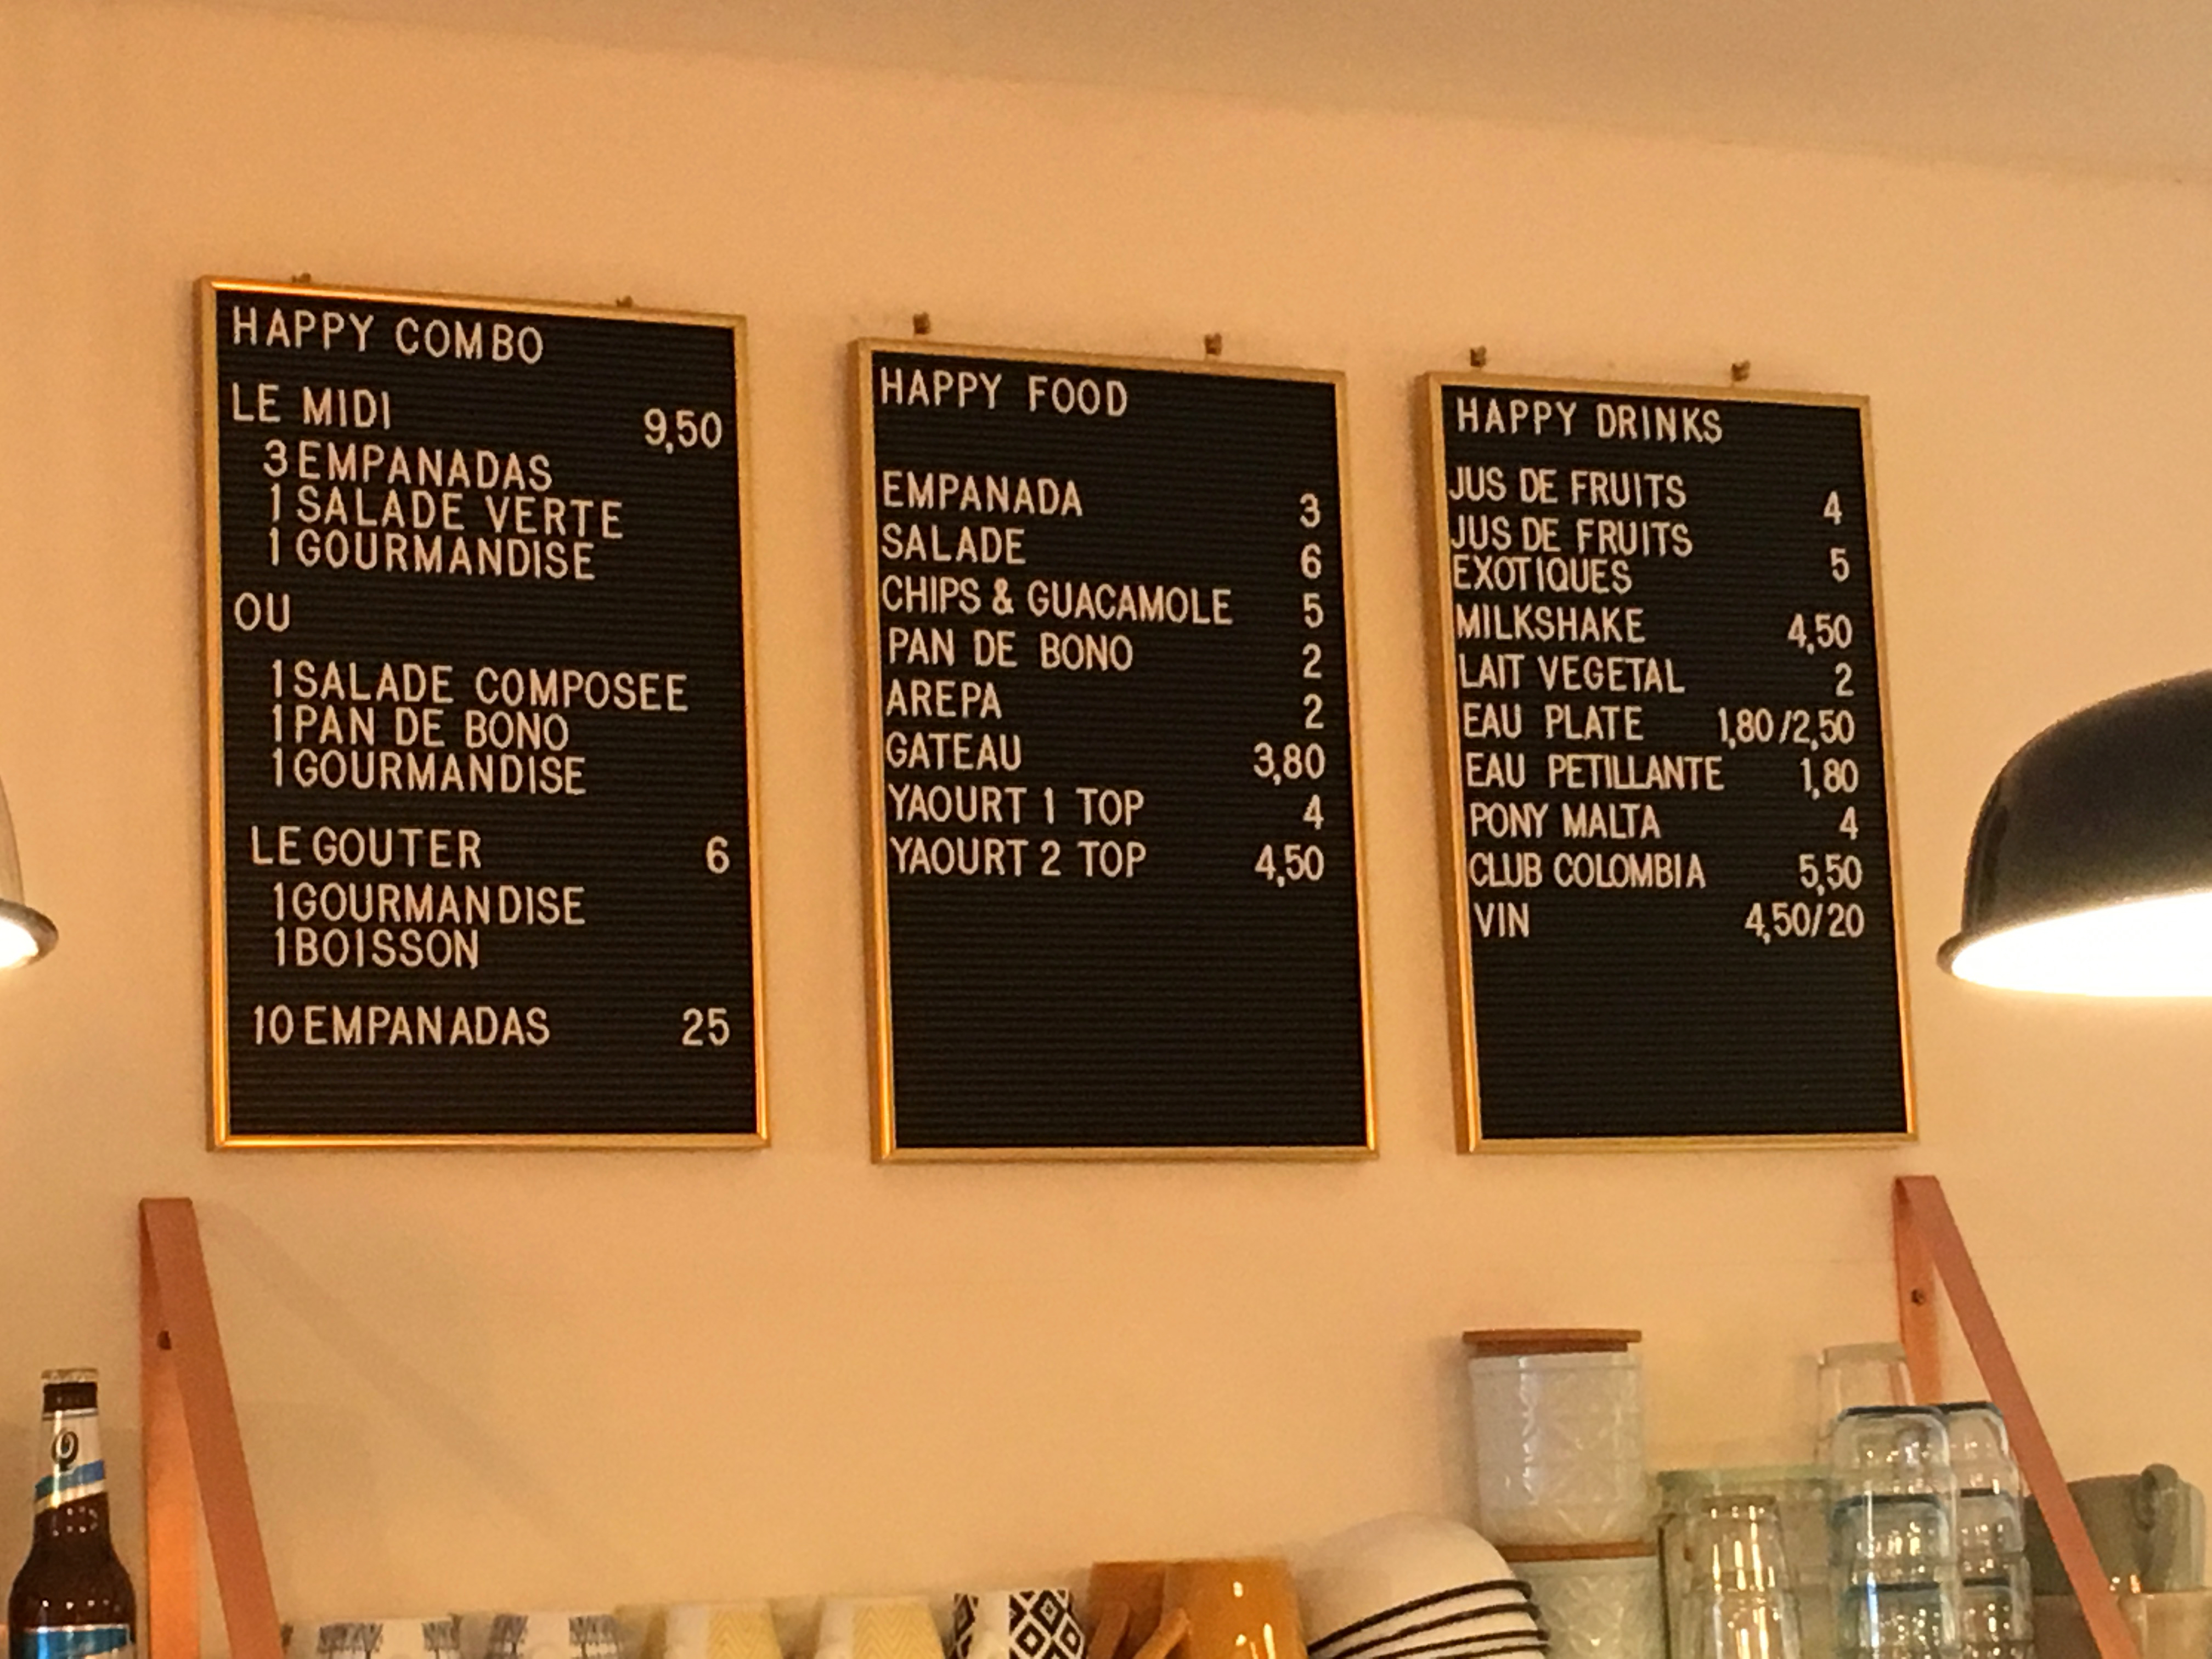 HAPPY COMBO
LE MIDI 9,50
3 EMPANADAS
1 SALADE VERTE
1 GOURMANDISE
OU
1 SALADE COMPOSEE
1 PAN DE BONO
1 GOURMANDISE
LE GOUTER 6
1 GOURMANDISE
1 BOISSON
10 EMPANADAS 25
HAPPY FOOD
EMPANADA 3
SALADE 6
CHIPS & GUACAMOLE 5
PAN DE BONO 2
AREPA 2
GATEAU 3,80
YAOURT 1 TOP 4
YAOURT 2 TOP 4,50
HAPPY DRINKS
JUS DE FRUITS 4
JUS DE FRUITS
EXOTIQUES 5
MILKSHAKE 4,50
LAIT VEGETAL 2
EAU PLATE 1,80/2,50
EAU PETILLANTE 1,80
PONY MALTA 4
CLUB COLOMBIA 5,50
VIN 4,50/20